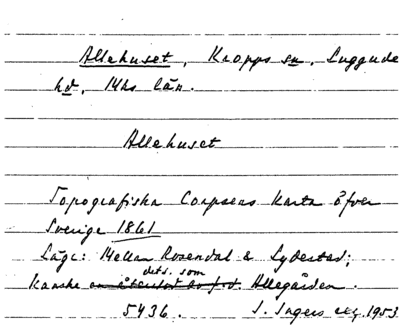 Allehuset, Kropps sn, Luggude
hd, Mhs län.
Allehuset
Topografiska Corpsens Karta öfver
Sverige 1861
Läge: Mellan Rosendal & Lydestad;
dets. som
Kanske Allegården.
5436. I. Ingers 1953